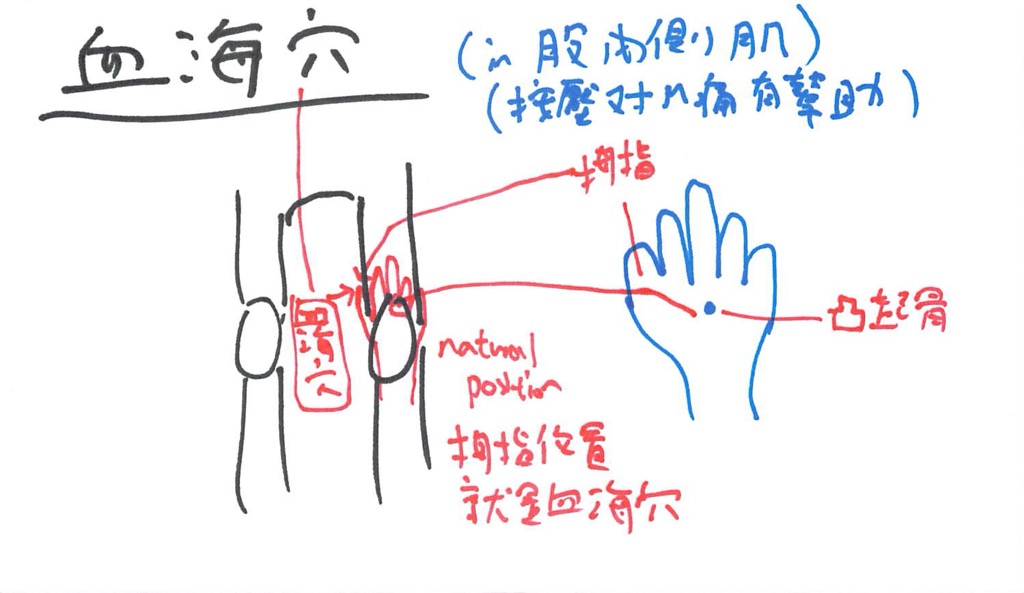 血海穴
(in 股內側肌)
(按壓对n痛有幫助)
拇指
凸起骨
血海穴
natural
position
拇指位置
就是血海穴